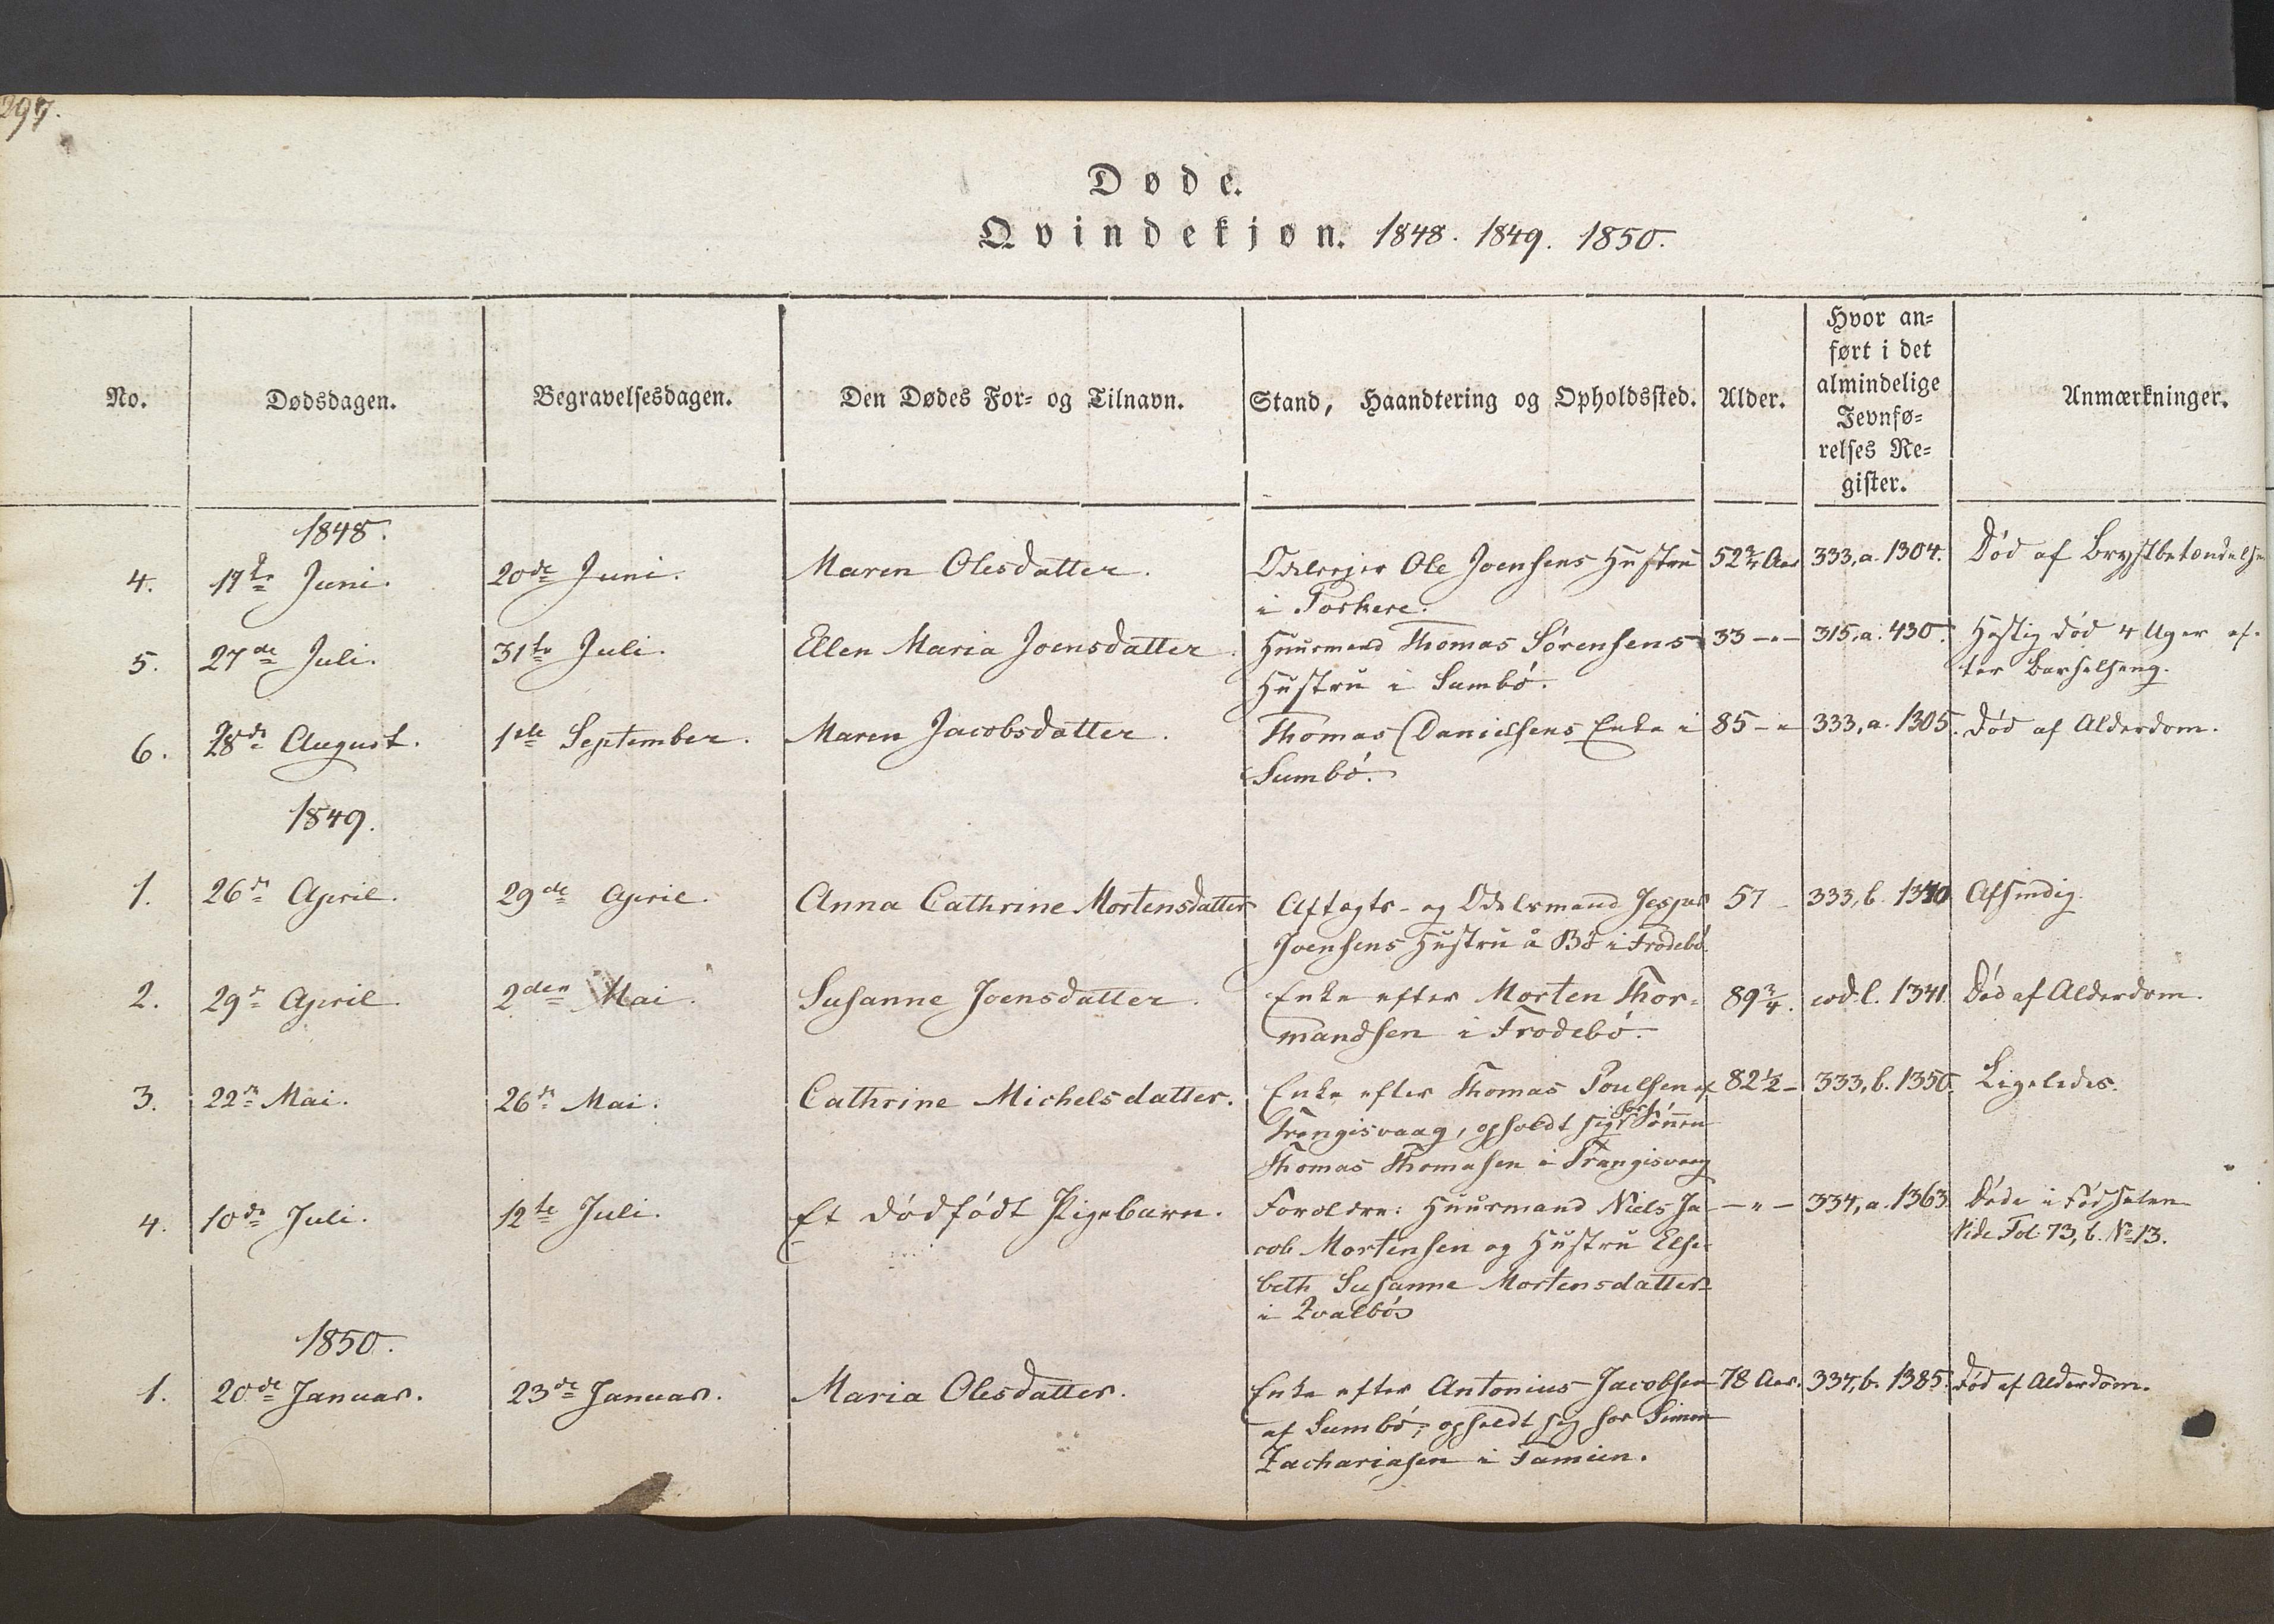 297.
Døde.
Qvindekjøn. 1848. 1849. 1850.
No.
Dødsdagen.
Begravelsesdagen.
Den Dødes For- og Tilnavn.
Stand, Haandtering og Opholdssted.
Alder.
Hvor an-
ført i det
almindelige
Jevnfø-
relses Re-
gister.
Anmærkninger.
1848.
4. 17de Juni. 20de Juni. Maren Olesdatter. Odelsejer Ole Joensens Hustru 52 3/4 Aar 333,a. 1304. Død af Brystbetændelse
i Porkere.
5. 27de Juli. 31te Juli. Ellen Maria Joensdatter. Huusmand Thomas Sørensens 33 -"- 315,a. 430. Hastig død 4 Uger ef-
Hustru i Sumbø. ter Barselseng.
6. 28de August. 1ste September. Maren Jacobsdatter. Thomas Danielsens Enke i 85 -"- 333,a. 1305. Død af Alderdom.
Sumbø.
1849.
1. 26de April. 29de April. Anna Cathrine Mortensdatter Aftægts- og Odelsmand Jespar 57 - 333,b. 1340 Afsindig.
Joensens Hustru å Bø i Frodebø.
2. 29de April. 2den Mai. Susanne Joensdatter. Enke efter Morten Thor- 89 3/4. eod. l. 1341. Død af Alderdom.
mandsen i Frodebø.
3. 22de Mai. 26de Mai. Cathrine Michelsdatter. Enke efter Thomas Poulsen af 82 1/2 - 333,b. 1350. Ligeledes.
Trangisvaag, opholdt sig hos Sønnen
Thomas Thomasen i Trangisvaag
4. 10de Juli. 12te Juli. Et dødfødt Pigebarn. Forældre: Huusmand Niels Ja- -"- 334,a. 1363. Døde i Fødselen
cob Mortensen og Hustru Else- Vide Fol. 73, b. No 13.
beth Susanne Mortensdatter
i Qvalbø
1850.
1. 20de Januar. 23de Januar. Maria Olesdatter. Enke efter Antonius Jacobsen 78 Aar. 334,b. 1385. Død af Alderdom.
af Sumbø; opholdt sig hos Simon
Zachariasen i Famien.